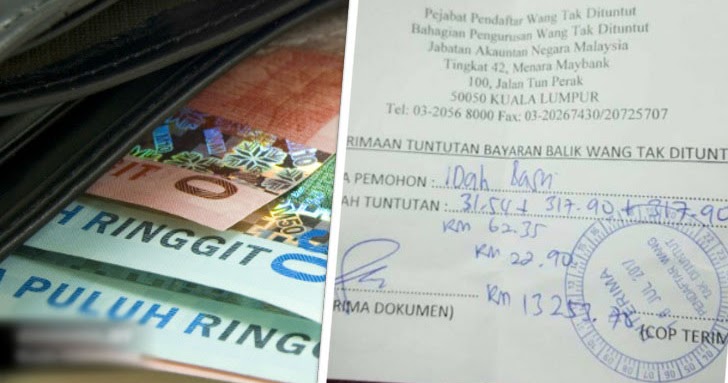 GGIT 0
M50
UH RINGGIT
A PULUH RINGG
Pejabat Pendaftar Wang Tak Dituntut
Bahagian Pengurusan Wang Tak Dituntut
Jabatan Akauntan Negara Malaysia
Tingkat 42, Menara Maybank
100, Jalan Tun Perak
50050 KUALA LUMPUR
Tel: 03-2056 8000 Fax: 03-20267430/20725707
RIMAAN TUNTUTAN BAYARAN BALIK WANG TAK DITUNT
A PEMOHON :
AH TUNTUTAN : 31.54 + 317.90 + 317.90
RM 62.35
RM 22.90
RM 13253.70
RIMA DOKUMEN)
(COP TERIM
PENDAFTAR WANG
TAK DITUNTUT
JUL 2017
TERIMA